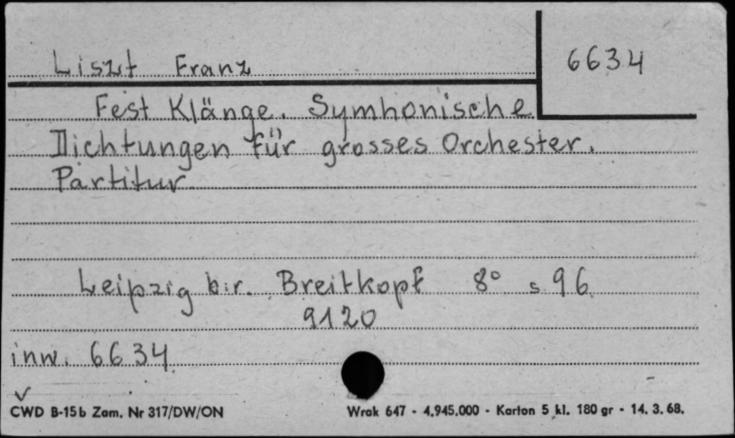 Liszt Franz
6634
Fest Klänge. Symhonische
Dichtungen für grosses Orchester.
Partitur
Leipzig b.r. Breitkopf 8° s 96
9120
inw. 6634
CWD B-15b Zam. Nr 317/DW/ON
Wrak 647 - 4.945.000 - Karton 5 kl. 180 gr - 14. 3. 68.